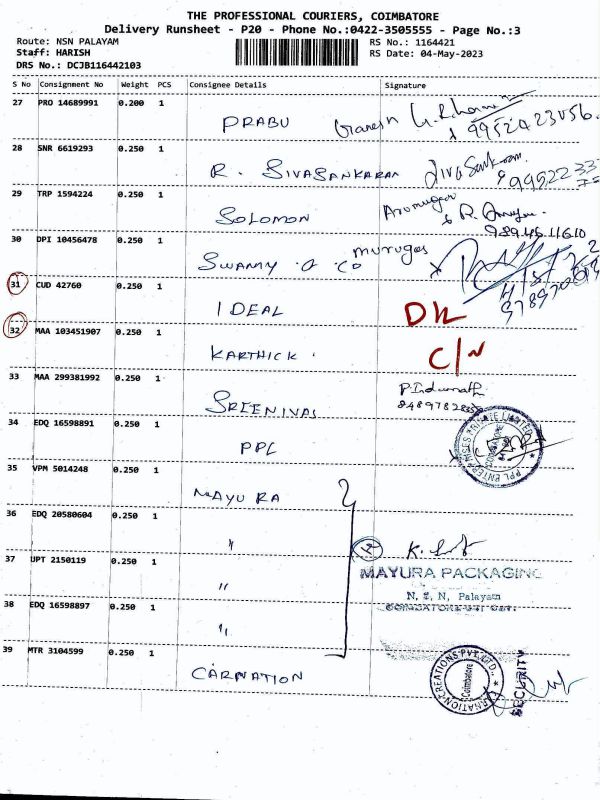 THE PROFESSIONAL COURIERS, COIMBATORE
Delivery Runsheet - P20 - Phone No.:0422-3505555 - Page No.:3
Route: NSN PALAYAM RS No.: 1164421
Staff: HARISH RS Date: 04-May-2023
DRS No.: DCJB116442103
S No Consignment No Weight PCS Consignee Details Signature
27 PRO 14689991 0.200 1
PRABU Ganesh
28 SNR 6619293 0.250 1
R. SIVASANKARAN Siva Sankaran
29 TRP 1594224 0.250 1
SOLOMON Arumugam
30 DPI 10456478 0.250 1
SWAMY & CO murugas
31 CUD 42760 0.250 1
IDEAL DL
32 MAA 103451907 0.250 1
KARTHICK. C/N
33 MAA 299381992 0.250 1
SREENIVAS
34 EDQ 16598891 0.250 1
PPL PPL ENTERPRISES PRIVATE LIMITED
35 VPM 5014248 0.250 1
MAYURA
36 EDQ 20580604 0.250 1
"
37 UPT 2150119 0.250 1
" MAYURA PACKAGING
38 EDQ 16598897 0.250 1 N. S. N. Palayam
"
39 MTR 3104599 0.250 1
CARNATION CARNATION CREATIONS PVT. LTD., Coimbatore SECURITY